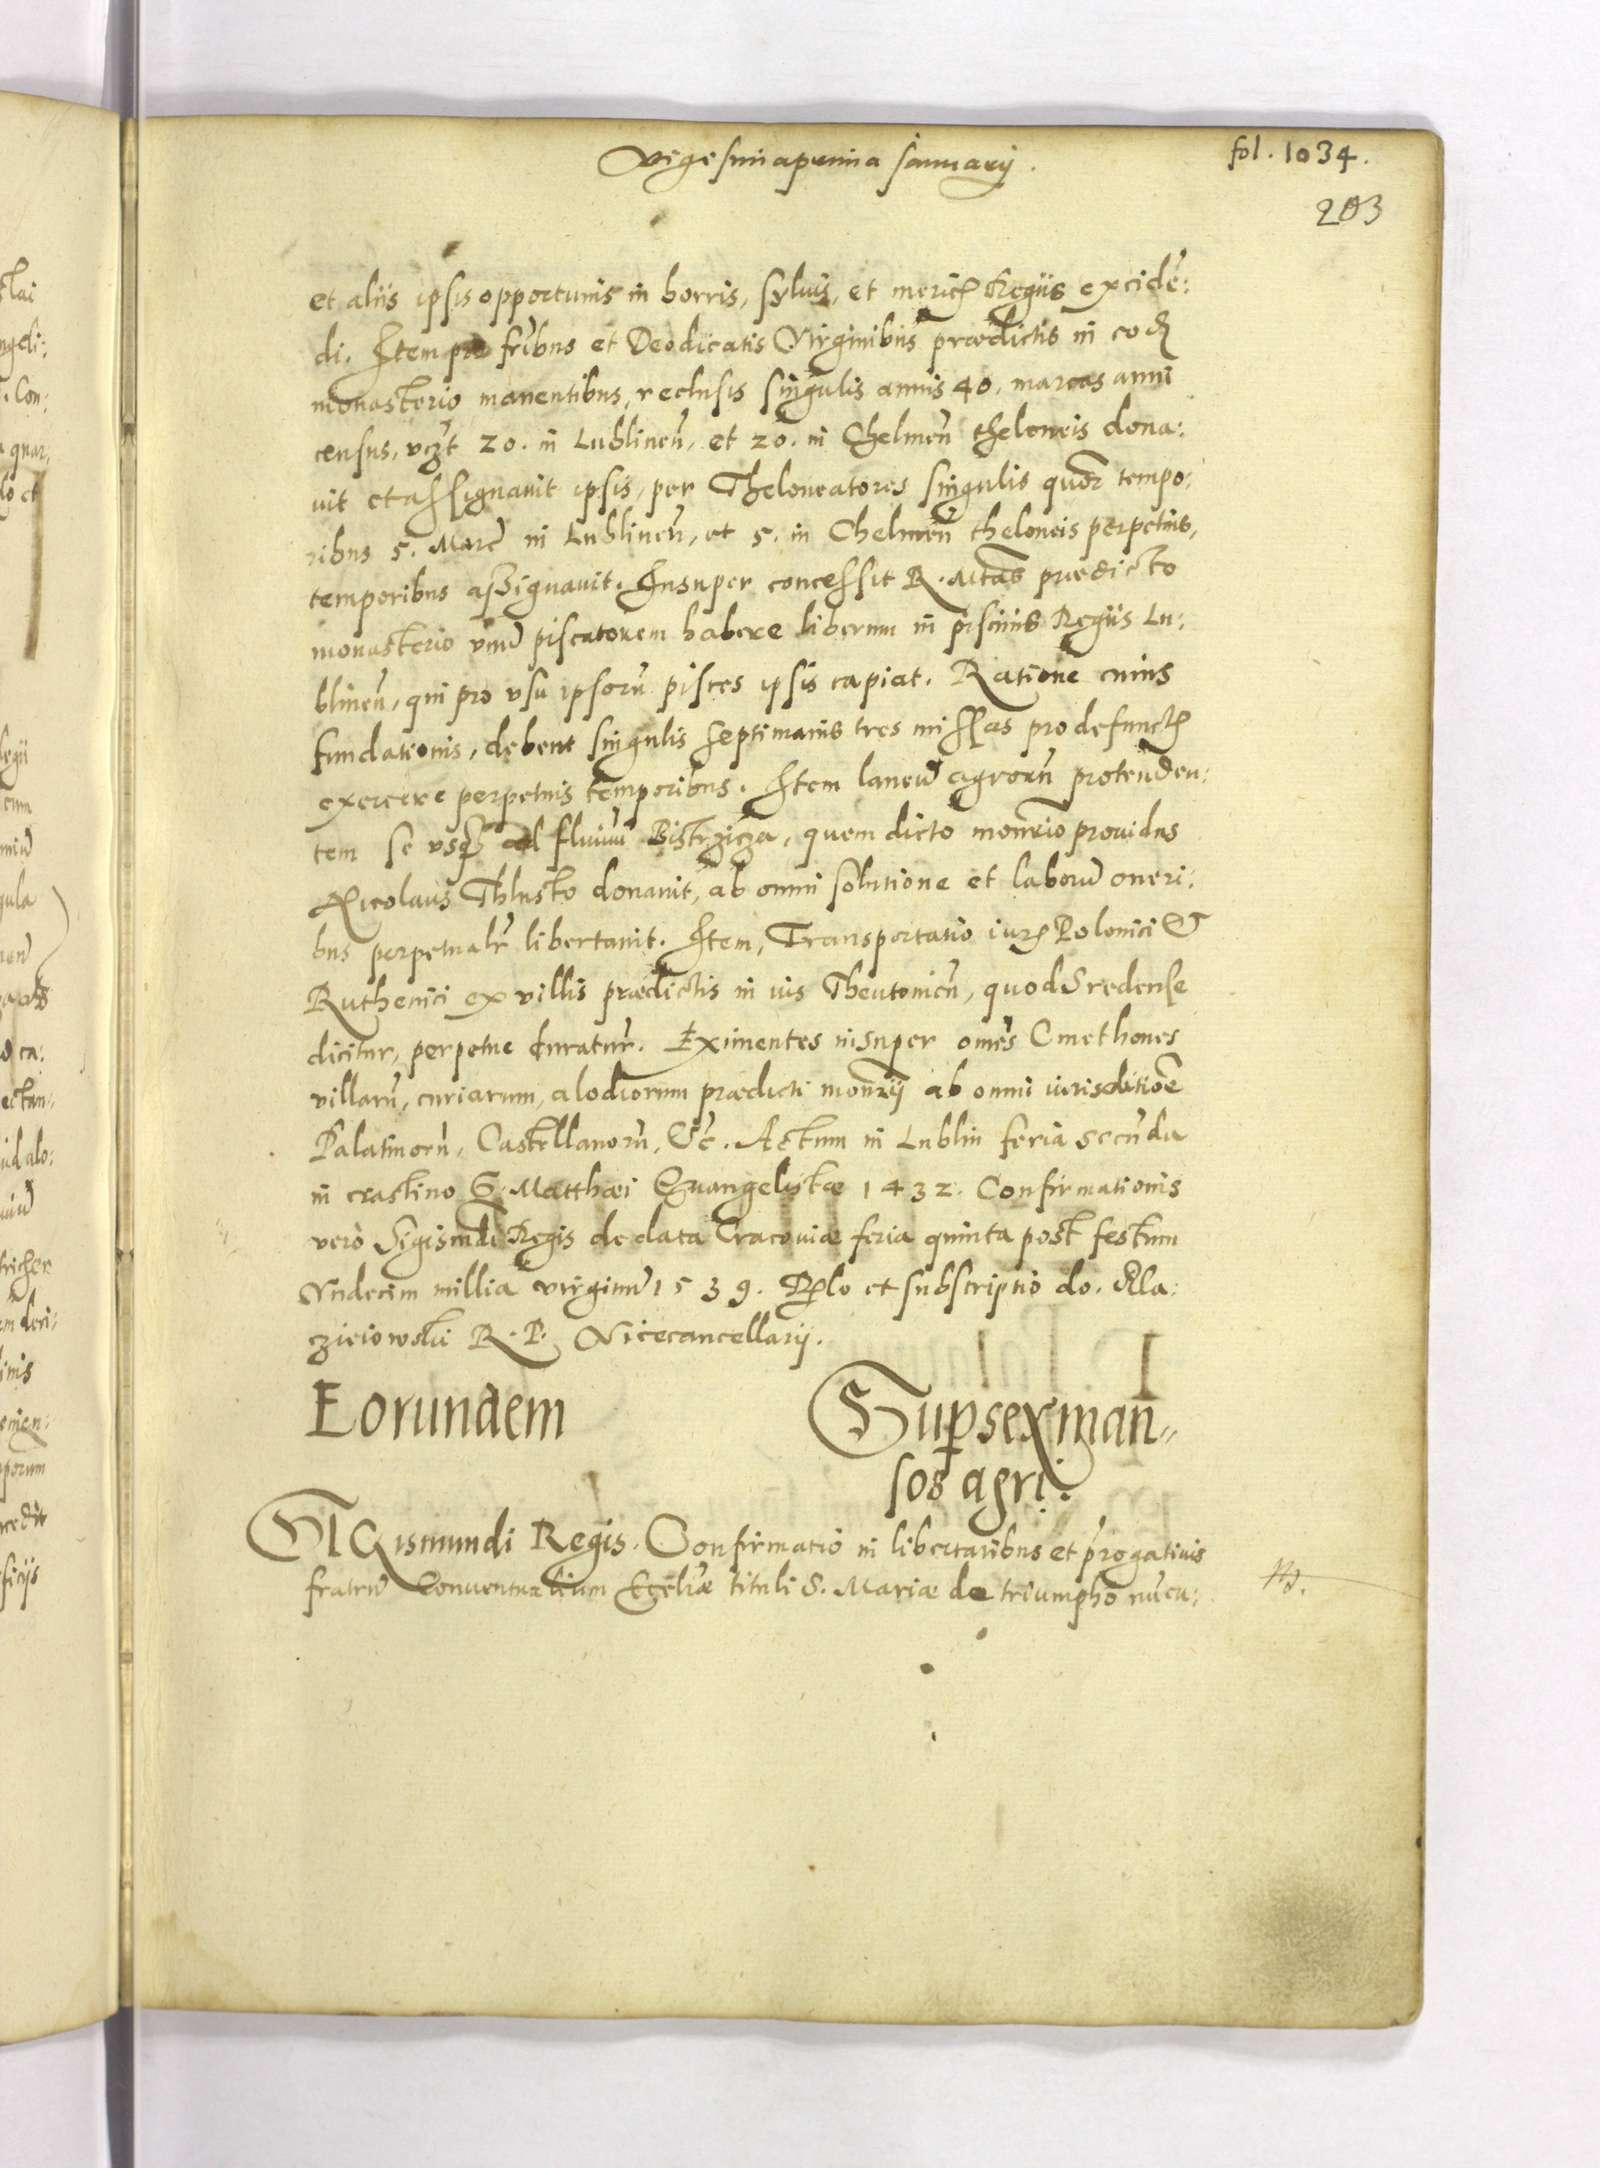 Vigesima prima January.
fol. 1034.
203
et aliis ipsis opportunis in borris, sylvis, et mericis Regiis exciden̄:
di. Item pro fribus et Deodicatis Virginibus prædictis in eod
monasterio manentibus, reclusis singulis annis 40. marcas anni
census, vczt 20. in Lublinen, et 20. in Chelmen theloneis dona:
vit et assignavit ipsis, per Theloneatores singulis quor tempo:
ribus 5. Marc in Lublinen, et 5. in Chelmen theloneis perpetuis,
temporibus assignavit. Insuper concessit R. Mtas prædicto
monasterio vnu piscatorem habere liberum in piscinis Regiis Lu:
blinen, qui pro vsu ipsoru pisces ipsis capiat. Ratione cuius
fundationis, debent singulis septimanis tres missas pro defunctis
exercere perpetuis temporibus. Item laneu agroru protenden:
tem se vsq ad fluviu Bistrzicza, quem dicto monrio providus
Nicolaus Thlusto donavit, ab omni solutione et laboru oneri:
bus perpetualr libertavit. Item, Transportatio iuris Polonici &
Ruthenici ex villis prædictis in ius Theutonicu, quod Sredense
dicitur, perpetue duratur. Eximentes insuper omes Cmethones
villaru, curiarum, alodiorum prædicti monrij ab omni iurisditioe
Palatinoru, Castellanoru, &c. Actum in Lublin feria secunda
in crastino S. Matthæi Evangelistæ 1432. Confirmationis
vero Sigismdi Regis de data Cracoviæ feria quinta post festum
Vndecim millia virginu 1539. Rlo et subscriptio do. Ma:
czieiowski R. P. Vicecancellarij.
Eorundem
Sup sex man„
sos agri.
SIGismundi Regis. Confirmatio in libertatibus et progativis
fratru Conventualium Eccliæ tituli S. Mariæ de triumpho nucu: